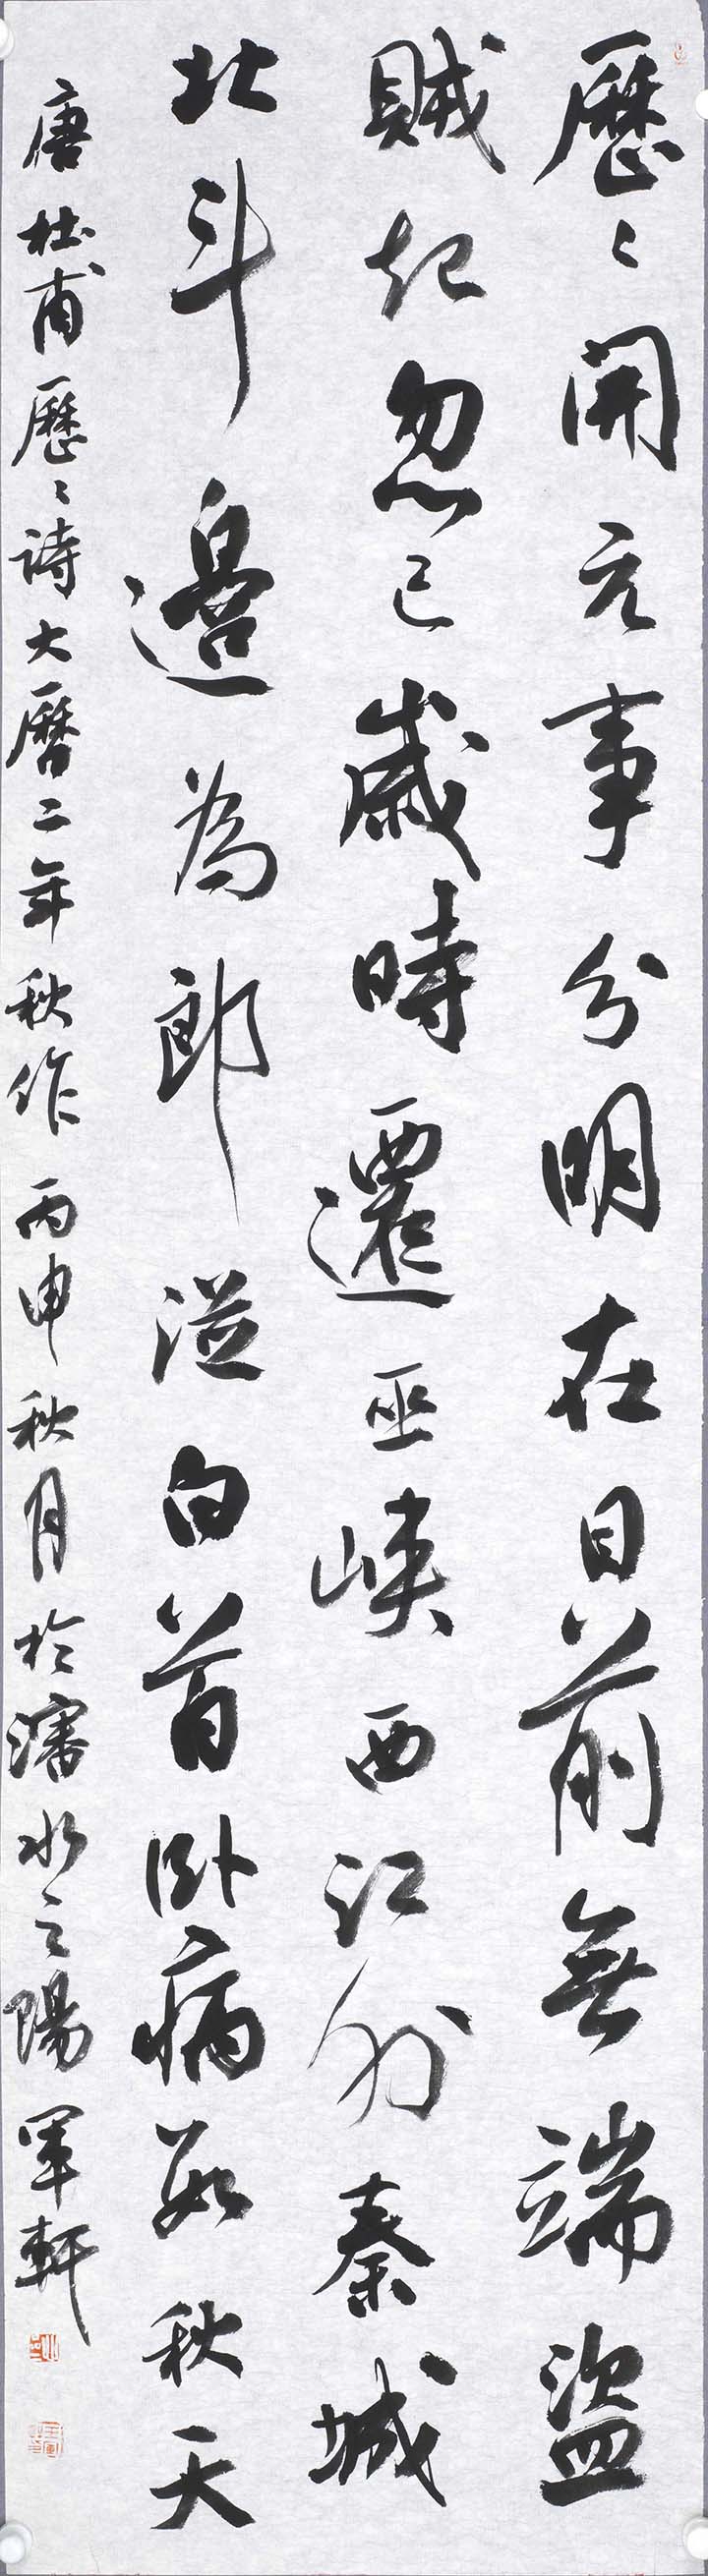 歷〻開元事分明在目前無端盜
賊起忽已歲時遷巫峽西江外秦城
北斗邊為郎從白首臥病數秋天
唐杜甫歷〻詩大曆二年秋作丙申秋月於滍水之陽軍軒